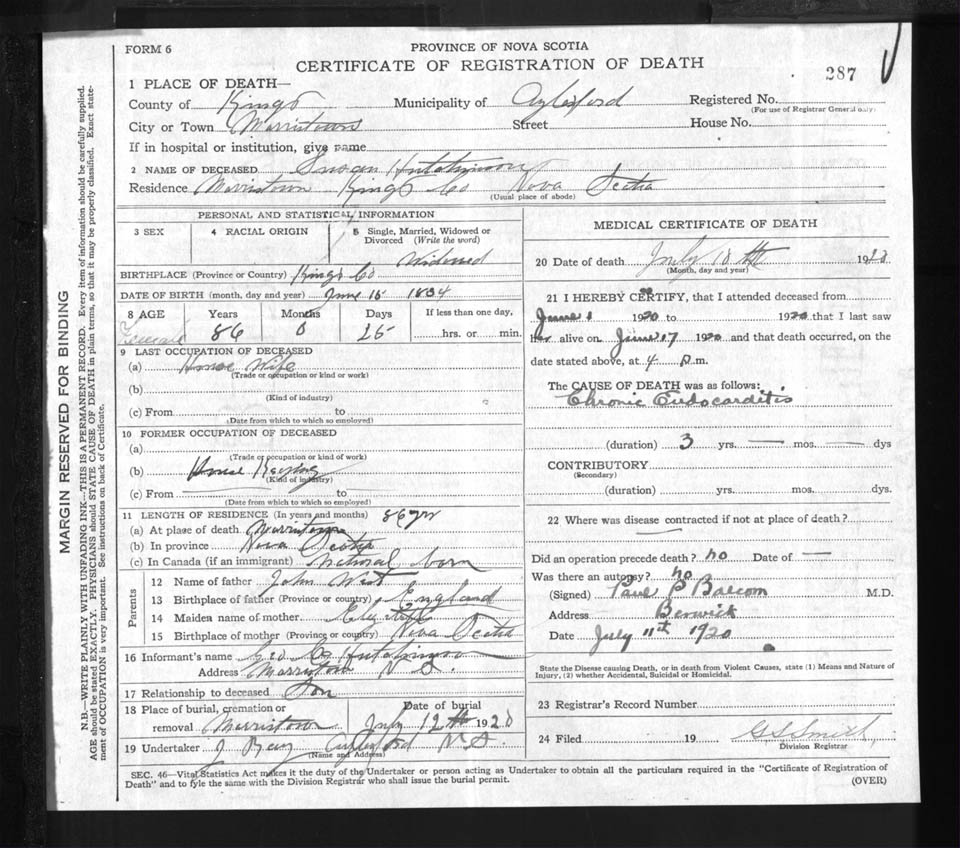 FORM 6
PROVINCE OF NOVA SCOTIA
CERTIFICATE OF REGISTRATION OF DEATH
287
1 PLACE OF DEATH—
County of Kings Municipality of Aylesford Registered No.
(For use of Registrar General only)
City or Town Morristown Street House No.
If in hospital or institution, give name
2 NAME OF DECEASED Susan Hutchinson
Residence Morristown Kings Co Nova Scotia
(Usual place of abode)
PERSONAL AND STATISTICAL INFORMATION
3 SEX 4 RACIAL ORIGIN 5 Single, Married, Widowed or Divorced (Write the word)
Widowed
BIRTHPLACE (Province or Country) Kings Co
DATE OF BIRTH (month, day and year) June 15 1834
8 AGE Years Months Days If less than one day,
Female 86 0 25 hrs. or min.
9 LAST OCCUPATION OF DECEASED
(a) House Wife
(Trade or occupation or kind or work)
(b)
(Kind of industry)
(c) From to
(Date from which to which so employed)
10 FORMER OCCUPATION OF DECEASED
(a)
(Trade or occupation or kind of work)
(b) House Keeping
(Kind of industry)
(c) From to
(Date from which to which so employed)
11 LENGTH OF RESIDENCE (In years and months) 86 yrs
(a) At place of death Morristown
(b) In province Nova Scotia
(c) In Canada (if an immigrant) Natural born
Parents
12 Name of father John West
13 Birthplace of father (Province or country) England
14 Maiden name of mother
15 Birthplace of mother (Province or country) Nova Scotia
16 Informant's name Geo Hutchinson
Address Morristown N S.
17 Relationship to deceased Son
18 Place of burial, cremation or removal Morristown
Date of burial July 12th 1920
19 Undertaker J Aylesford N S
(Name and Address)
MEDICAL CERTIFICATE OF DEATH
20 Date of death July 10th 1920
(Month, day and year)
21 I HEREBY CERTIFY, that I attended deceased from
June 1 1920 to 1920 that I last saw
her alive on June 17 1920 and that death occurred, on
date stated above, at 4 p.m.
The CAUSE OF DEATH was as follows:
Chronic Endocarditis
(duration) 3 yrs. — mos. — dys
CONTRIBUTORY
(Secondary)
(duration) yrs. mos. dys.
22 Where was disease contracted if not at place of death?
—
Did an operation precede death? no Date of —
Was there an autopsy? no
(Signed) Paul P Balcom M.D.
Address Berwick
Date July 11th 1920
State the Disease causing Death, or in death from Violent Causes, state (1) Means and Nature of
Injury, (2) whether Accidental, Suicidal or Homicidal.
23 Registrar's Record Number
24 Filed 19 Smith
Division Registrar
SEC. 46—Vital Statistics Act makes it the duty of the Undertaker or person acting as Undertaker to obtain all the particulars required in the "Certificate of Registration of
Death" and to fyle the same with the Division Registrar who shall issue the burial permit.
(OVER)
MARGIN RESERVED FOR BINDING
N.B.—WRITE PLAINLY WITH UNFADING INK—THIS IS A PERMANENT RECORD. Every item of information should be carefully supplied.
AGE should be stated EXACTLY. PHYSICIANS should STATE CAUSE OF DEATH in plain terms, so that it may be properly classified. Exact state-
ment of OCCUPATION is very important. See instructions on back of Certificate.